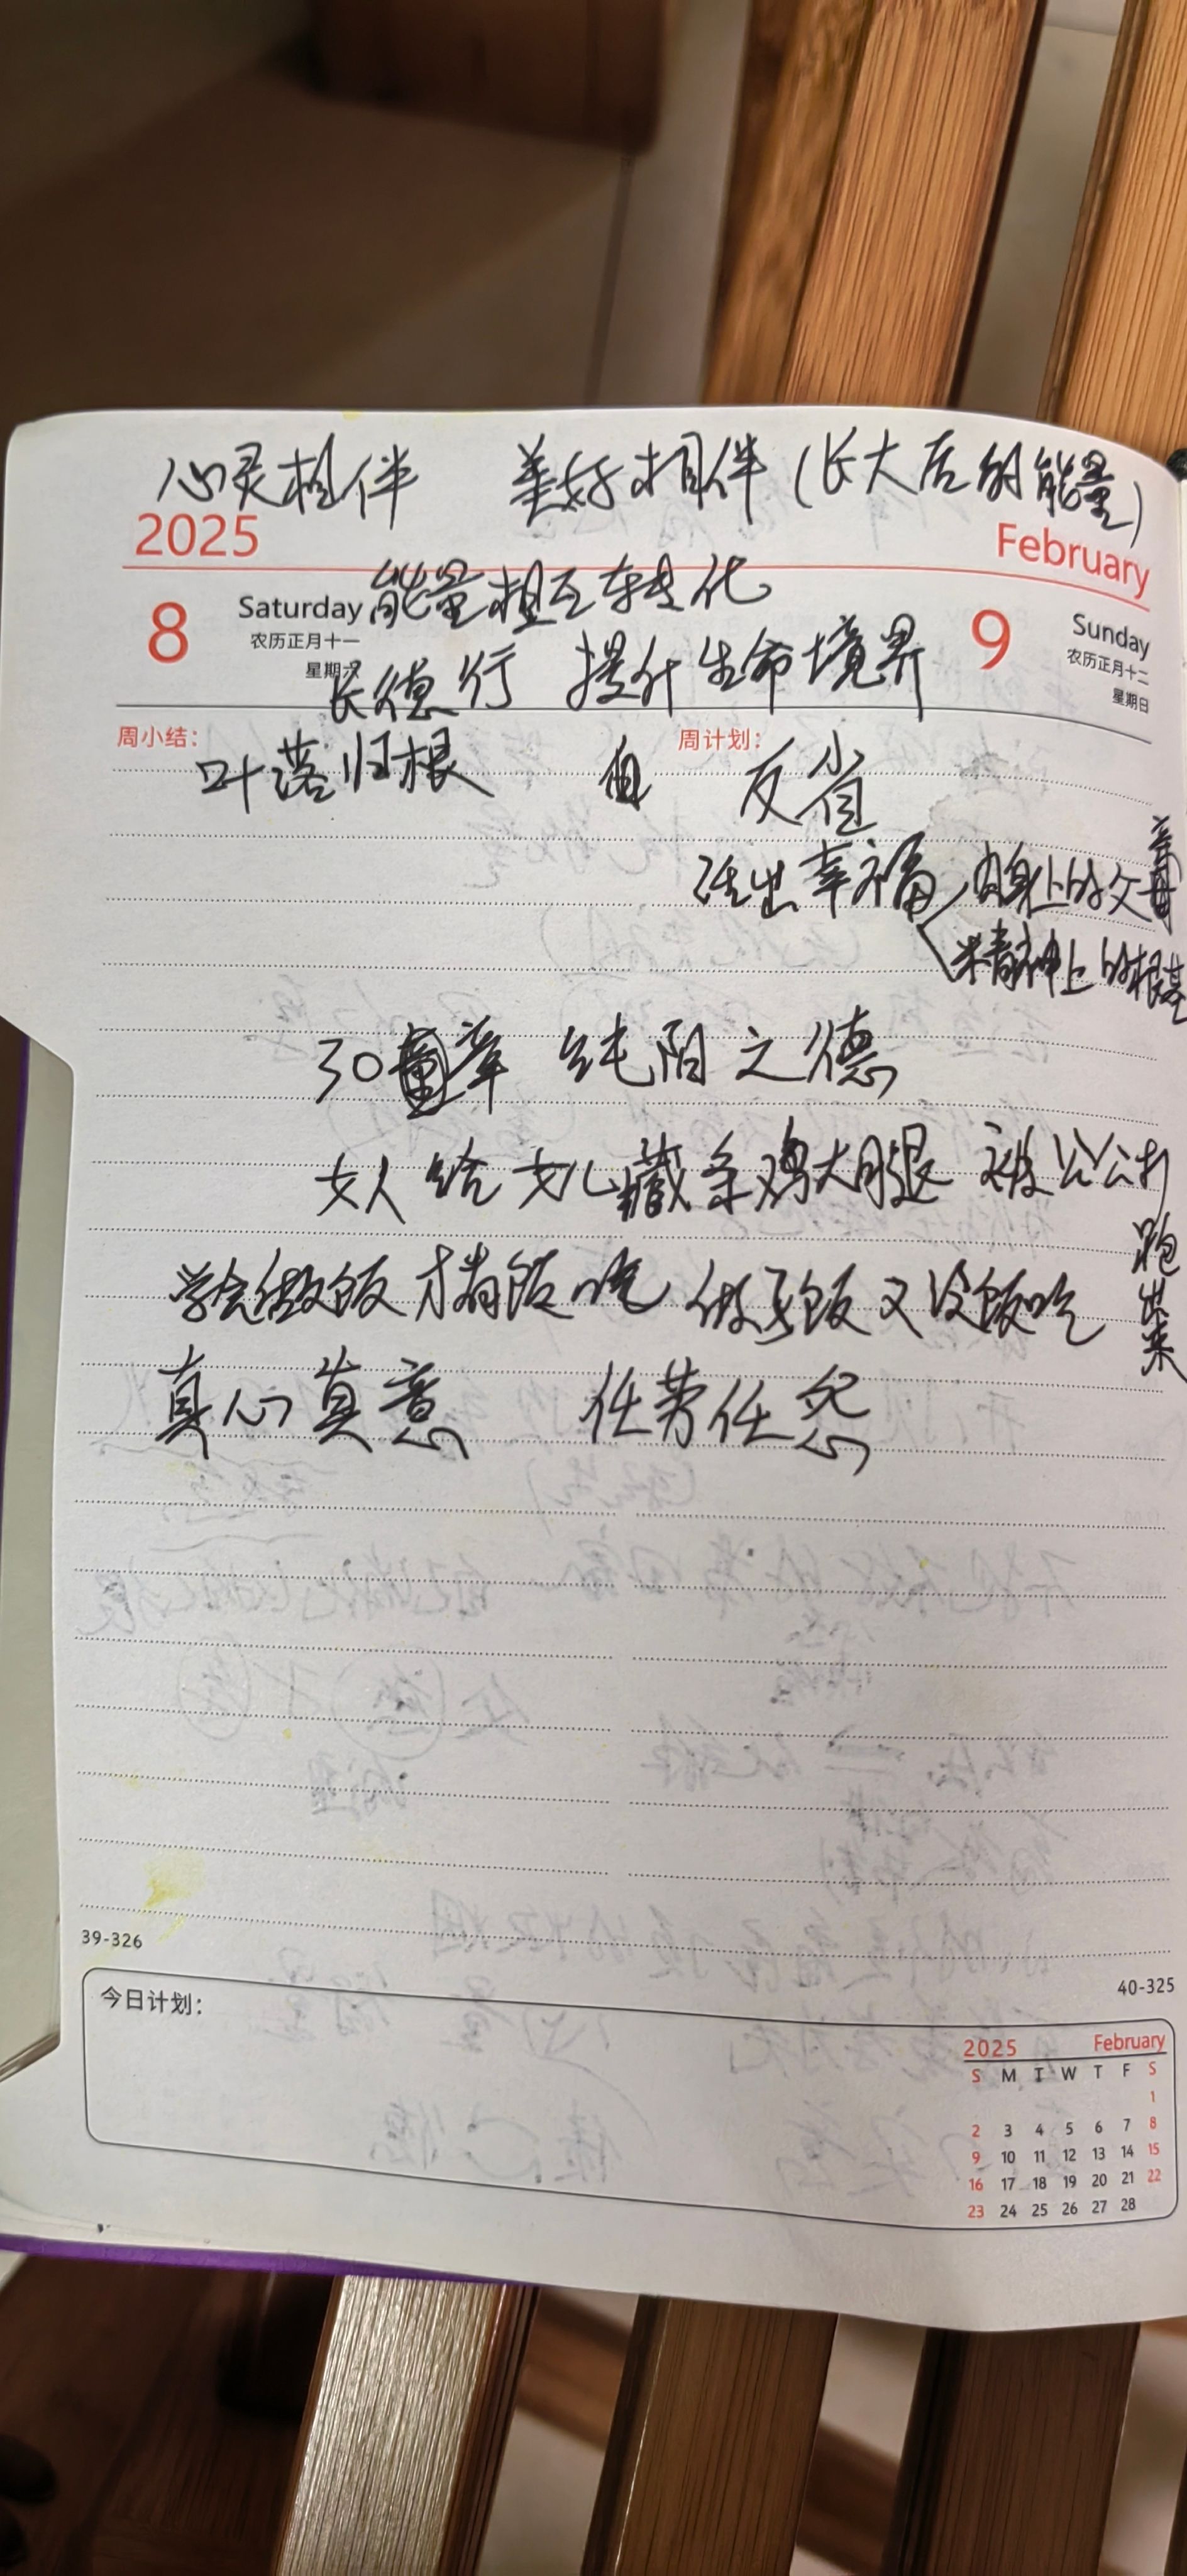 心灵相伴 美好相伴(长大后的能量)
2025 February
能量相互转化
8 Saturday 农历正月十一 星期六
9 Sunday 农历正月十二 星期日
长德行 提升生命境界
周小结: 周计划:
叶落归根 自 反省
活出幸福 肉身上的父母
精神上的根基
30章 纯阳之德
女人给女儿藏条鸡大腿 被公公打跑出来
学会做饭才有饭吃 做了饭又没饭吃
真心真意 任劳任怨
39-326
40-325
今日计划:
2025 February
S M T W T F S
1
2 3 4 5 6 7 8
9 10 11 12 13 14 15
16 17 18 19 20 21 22
23 24 25 26 27 28